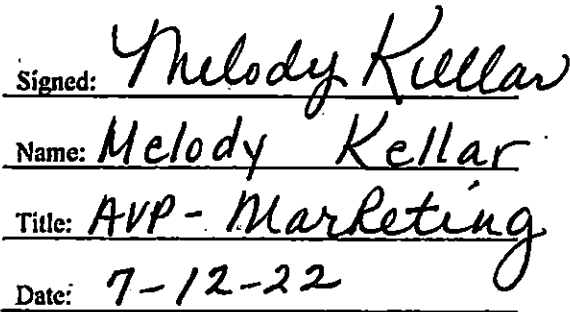 Signed: Melody Kellar
Name: Melody Kellar
Title: AVP - Marketing
Date: 7-12-22